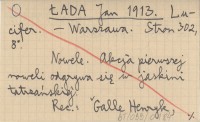 ŁADA Jan 1913. Lu-
cifer. – Warszawa. Stron 302,
8°
Nowele. Akcja pierwszej
noweli odgrywa się w jaskini
tatrzańskiej.
Rec.: Galle Henryk,